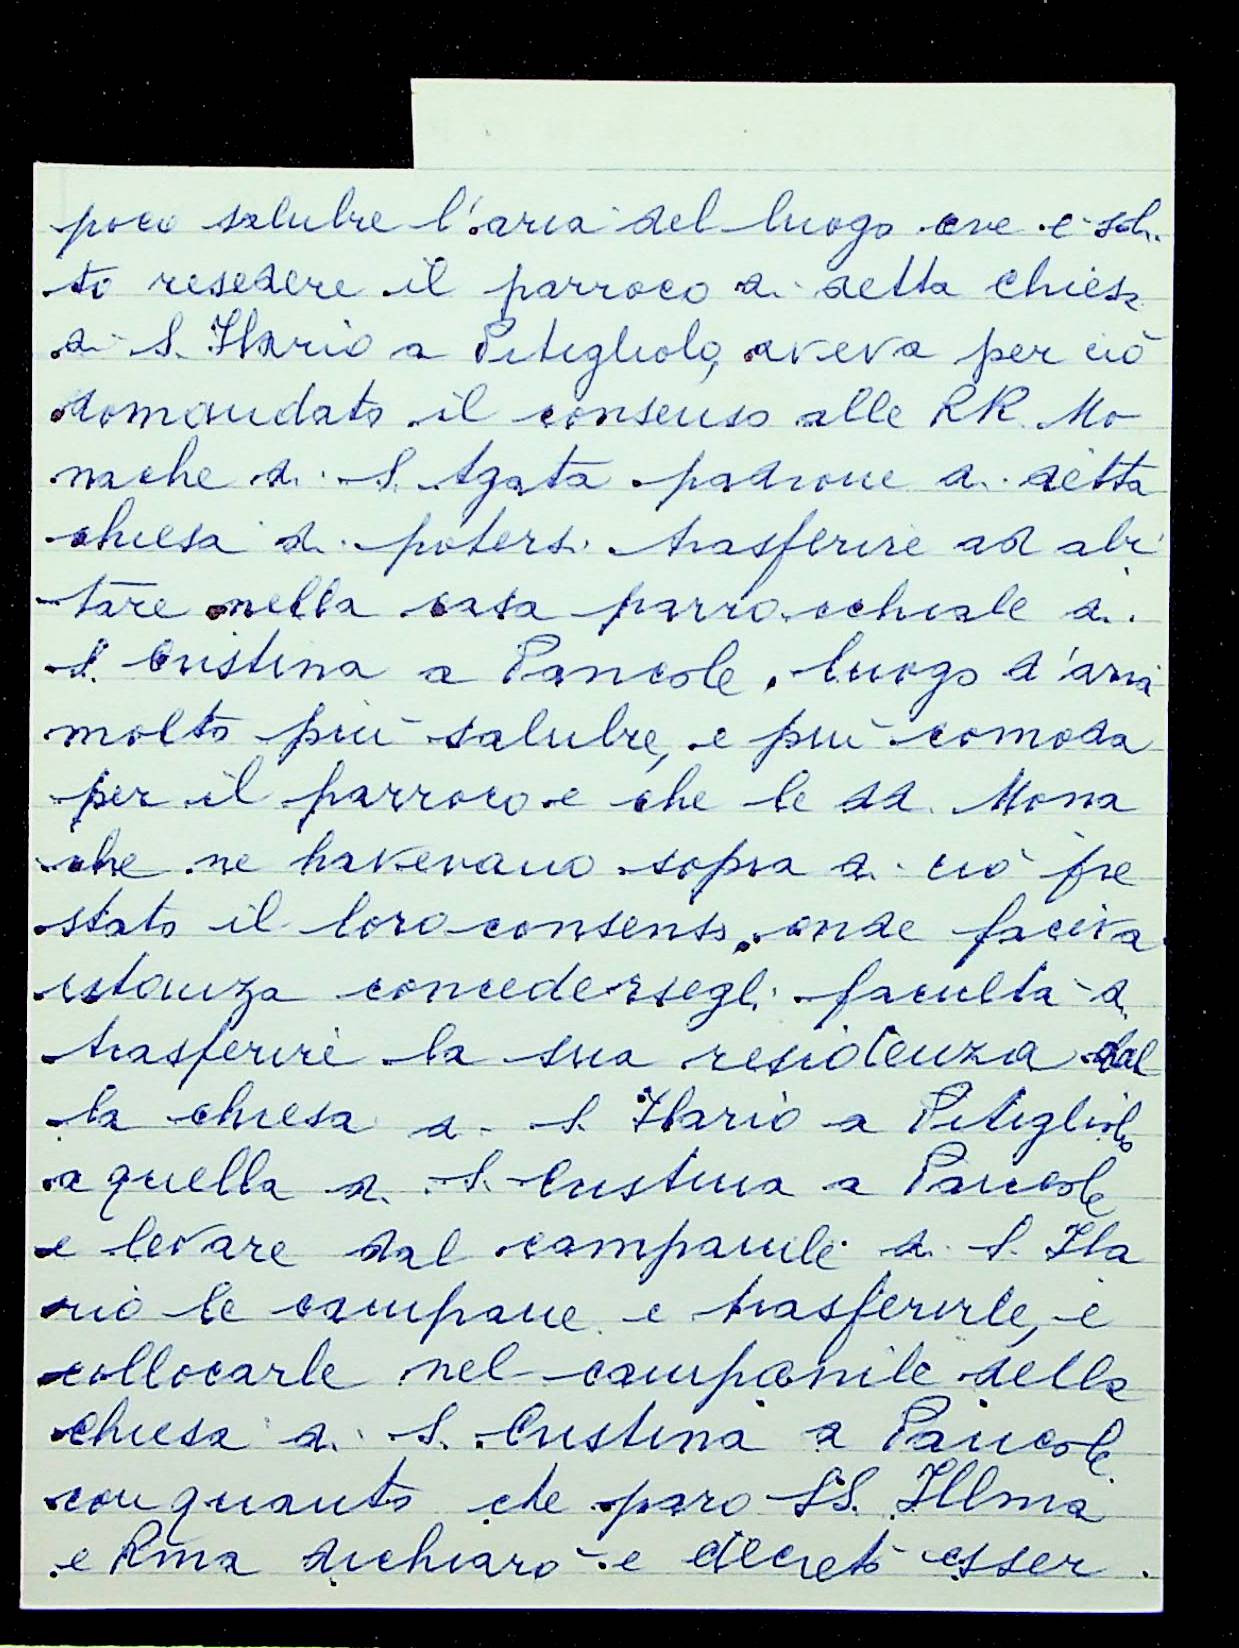 poco salubre l'aria del luogo ove è soli
to resedere il parroco di detta chiesa
di S. Ilario a Pitigliolo, aveva per ciò
domandato il consenso alle RR. Mo
nache di S. Agata padrone di detta
chiesa di potersi trasferire ad abi
tare nella casa parrocchiale di
S. Cristina a Pancole, luogo d'aria
molto più salubre, e più comoda
per il parroco e che le dd. Mona
che ne havevano sopra di ciò pre
stato il loro consenso, onde faceva
istanza concedersegli facultà di
trasferire la sua residenza dal
la chiesa di S. Ilario a Pitigliolo
a quella di S. Cristina a Pancole
e levare dal campanile di S. Ila
rio le campane e trasferirle, e
collocarle nel campanile della
chiesa di S. Cristina a Pancole
con quanto che paro SS. Illma
e Rma dichiarò e decretò esser